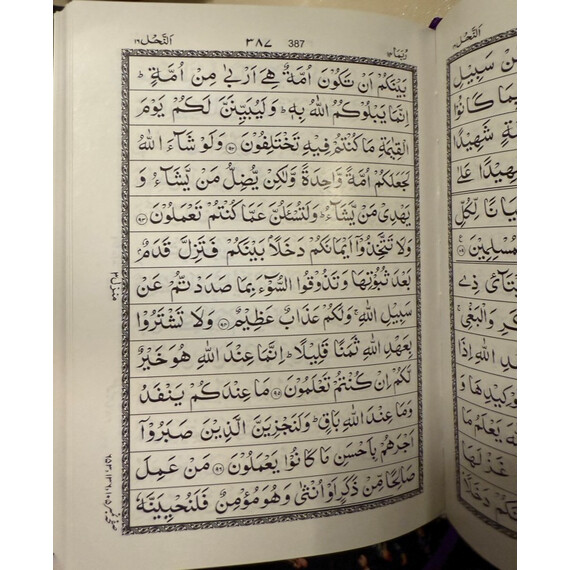 رُبَمَا ١٤
387 ٣٨٧
اَلنَّحۡل ١٦
بَيۡنَكُمۡ اَنۡ تَكُوۡنَ اُمَّةٌ هِىَ اَرۡبٰى مِنۡ اُمَّةٍ‌ ؕ
اِنَّمَا يَبۡلُوۡكُمُ اللّٰهُ بِهٖ‌ ؕ وَلَيُبَيِّنَنَّ لَكُمۡ يَوۡمَ
الۡقِيٰمَةِ مَا كُنۡتُمۡ فِيۡهِ تَخۡتَلِفُوۡنَ‏ ﴿۹۲﴾ وَلَوۡ شَآءَ اللّٰهُ
لَجَعَلَكُمۡ اُمَّةً وَّاحِدَةً وَّلٰـكِنۡ يُّضِلُّ مَنۡ يَّشَآءُ وَ
يَهۡدِىۡ مَنۡ يَّشَآءُ‌ ؕ وَلَـتُسۡـئَلُنَّ عَمَّا كُنۡتُمۡ تَعۡمَلُوۡنَ‏ ﴿۹۳﴾
وَلَا تَتَّخِذُوۡۤا اَيۡمَانَكُمۡ دَخَلًاۢ بَيۡنَكُمۡ فَتَزِلَّ قَدَمٌۢ
بَعۡدَ ثُبُوۡتِهَا وَتَذُوۡقُوا السُّوۡۤءَ بِمَا صَدَدْتُّمۡ عَنۡ
سَبِيۡلِ اللّٰهِ‌ ۚ وَلَـكُمۡ عَذَابٌ عَظِيۡمٌ‏ ﴿۹۴﴾ وَلَا تَشۡتَرُوۡا
بِعَهۡدِ اللّٰهِ ثَمَنًا قَلِيۡلًا‌ ؕ اِنَّمَا عِنۡدَ اللّٰهِ هُوَ خَيۡرٌ
لَّـكُمۡ اِنۡ كُنۡتُمۡ تَعۡلَمُوۡنَ‏ ﴿۹۵﴾ مَا عِنۡدَكُمۡ يَنۡفَدُ‌
وَمَا عِنۡدَ اللّٰهِ بَاقٍؕ‌ وَلَـنَجۡزِيَنَّ الَّذِيۡنَ صَبَرُوۡۤا
اَجۡرَهُمۡ بِاَحۡسَنِ مَا كَانُوۡا يَعۡمَلُوۡنَ‏ ﴿۹۶﴾ مَنۡ عَمِلَ
صَالِحًـا مِّنۡ ذَكَرٍ اَوۡ اُنۡثٰى وَهُوَ مُؤۡمِنٌ فَلَـنُحۡيِيَنَّهٗ
منزل ٣
اَلنَّحۡل
مِّنۡ سَبِيۡلِ
بِمَا كَانُوۡا
شَهِيۡدًا
شَهِيۡدًا عَلٰى
لِّكُلِّ
ذِى
وَالۡبَغۡىِ‌ۚ
اللّٰهِ اِذَا
يَعۡلَمُ مَا
غَزۡلَهَا
دَخَلًاۢ